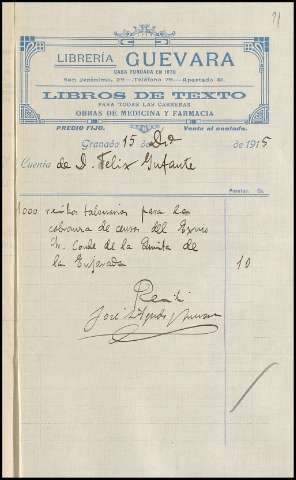 LIBRERÍA GUEVARA
CASA FUNDADA EN 1870
San Jerónimo, 29.—Teléfono 79.—Apartado 31.
LIBROS DE TEXTO
PARA TODAS LAS CARRERAS
OBRAS DE MEDICINA Y FARMACIA
PRECIO FIJO. Venta al contado.
Granada 15 de Dic de 1915
Cuenta de D. Felix Infante
Pesetas. Cs.
1000 recibos talonarios para la
cobranza de censos del Excmo
Sr. Conde de la Ermita de
la Enjarada 10
Recibí
José